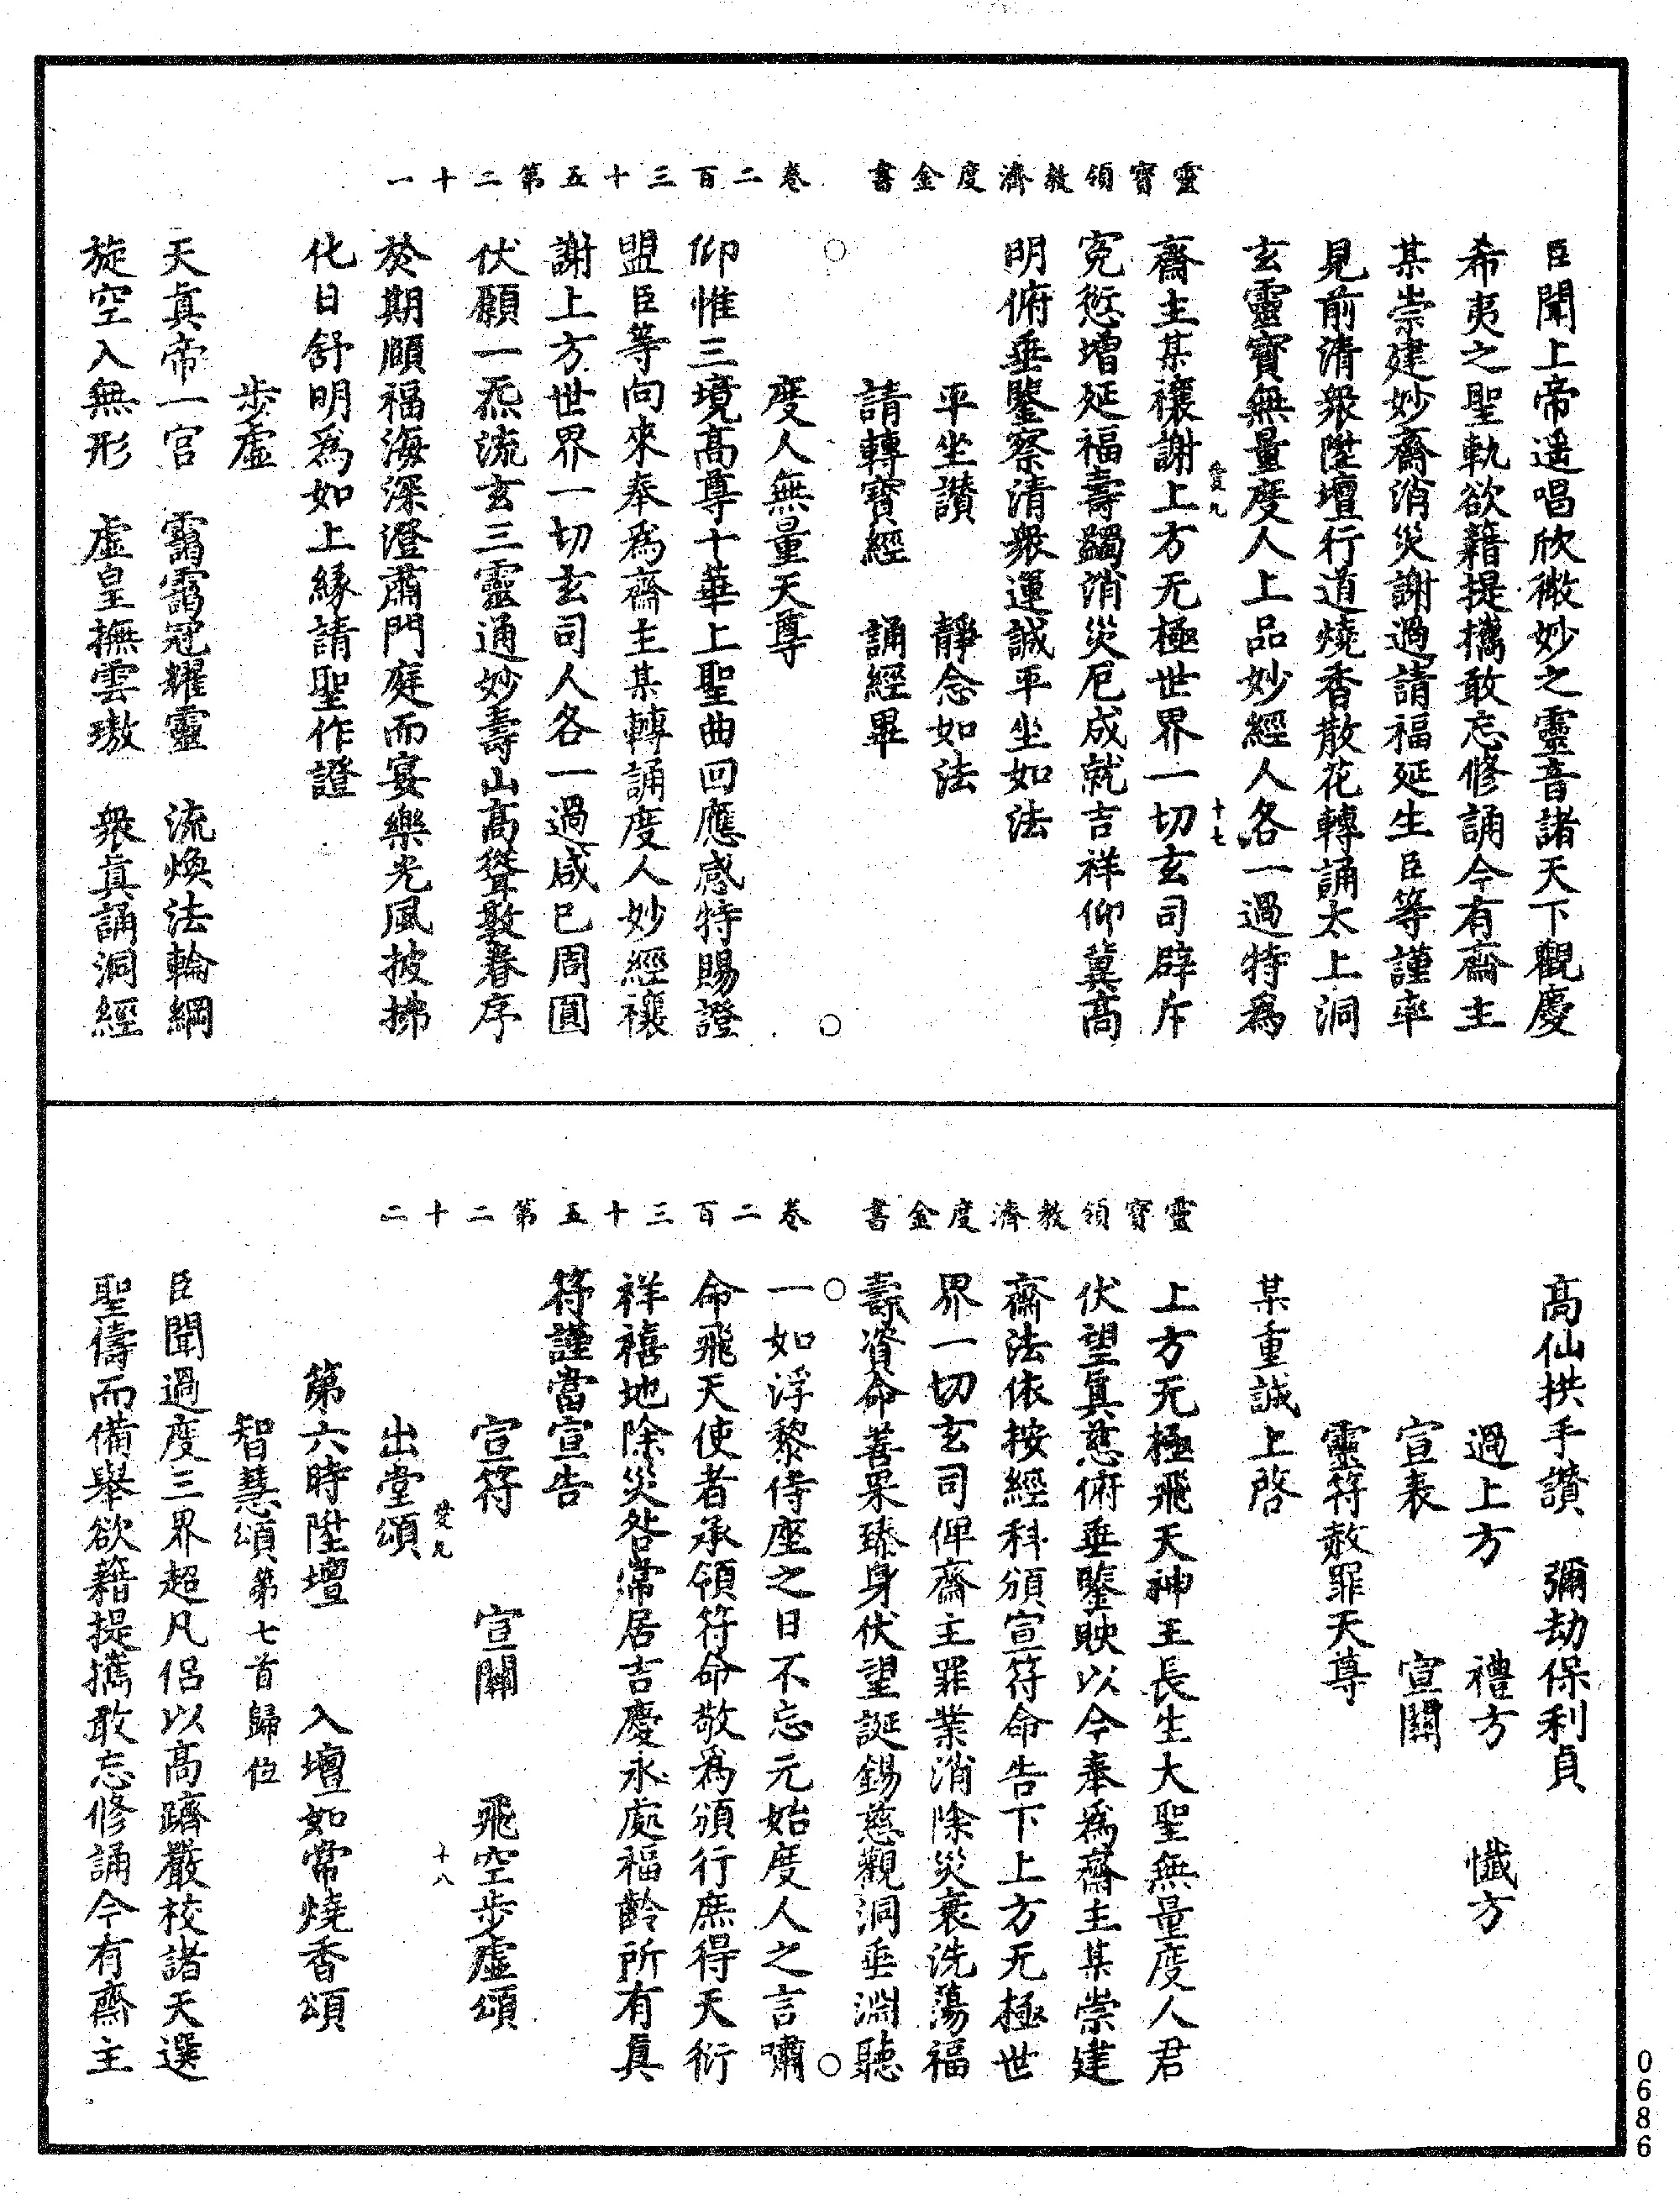 靈寶領教濟度金書　卷二百三十五第二十一
臣聞上帝遥唱欣微妙之靈音諸天下觀慶
希夷之聖軌欲籍提攜敢忘修誦今有齋主
某崇建妙齋消災謝過請福延生臣等謹率
見前清衆陞壇行道燒香散花轉誦太上洞
玄靈寶無量度人上品妙經人各一過特爲
齋主某禳謝上方无極世界一切玄司辟斥
冤愆增延福壽蠲消災厄成就吉祥仰冀高
明俯垂鑒察清衆運誠平坐如法
平坐讃　靜念如法
請轉寶經　誦經畢
度人無量天尊
仰惟三境高尊十華上聖曲回應感特賜證
盟臣等向來奉爲齋主某轉誦度人妙經禳
謝上方世界一切玄司人各一過咸已周圓
伏願一炁流玄三靈通妙壽山高聳敷春序
於期頤福海深澄肅門庭而宴樂光風披拂
化日舒明爲如上緣請聖作證
步虛
天真帝一宫　靄靄冠耀靈　流煥法輪綱
旋空入無形　虛皇撫雲璈　衆真誦洞經
十七
靈寶領教濟度金書　卷二百三十五第二十二
高仙拱手讃　彌劫保利貞
過上方　禮方　懺方
宣表　宣關
靈符赦罪天尊
某重誠上啓
上方无極飛天神王長生大聖無量度人君
伏望真慈俯垂鑒映以今奉爲齋主某崇建
齋法依按經科頒宣符命告下上方无極世
界一切玄司俾齋主罪業消除災衰洗蕩福
壽資命善果臻身伏望誕錫慈觀洞垂淵聽
一如浮黎侍座之日不忘元始度人之言嘯
命飛天使者承領符命敬爲頒行庶得天衍
祥禧地除災咎常居吉慶永處福齡所有真
符謹當宣告
宣符　宣關　飛空步虛頌
出堂頌
第六時陞壇　入壇如常燒香頌
智慧頌第七首歸位
臣聞過度三界超凡侣以高躋嚴校諸天選
聖儔而備舉欲籍提攜敢忘修誦今有齋主
十八
0686